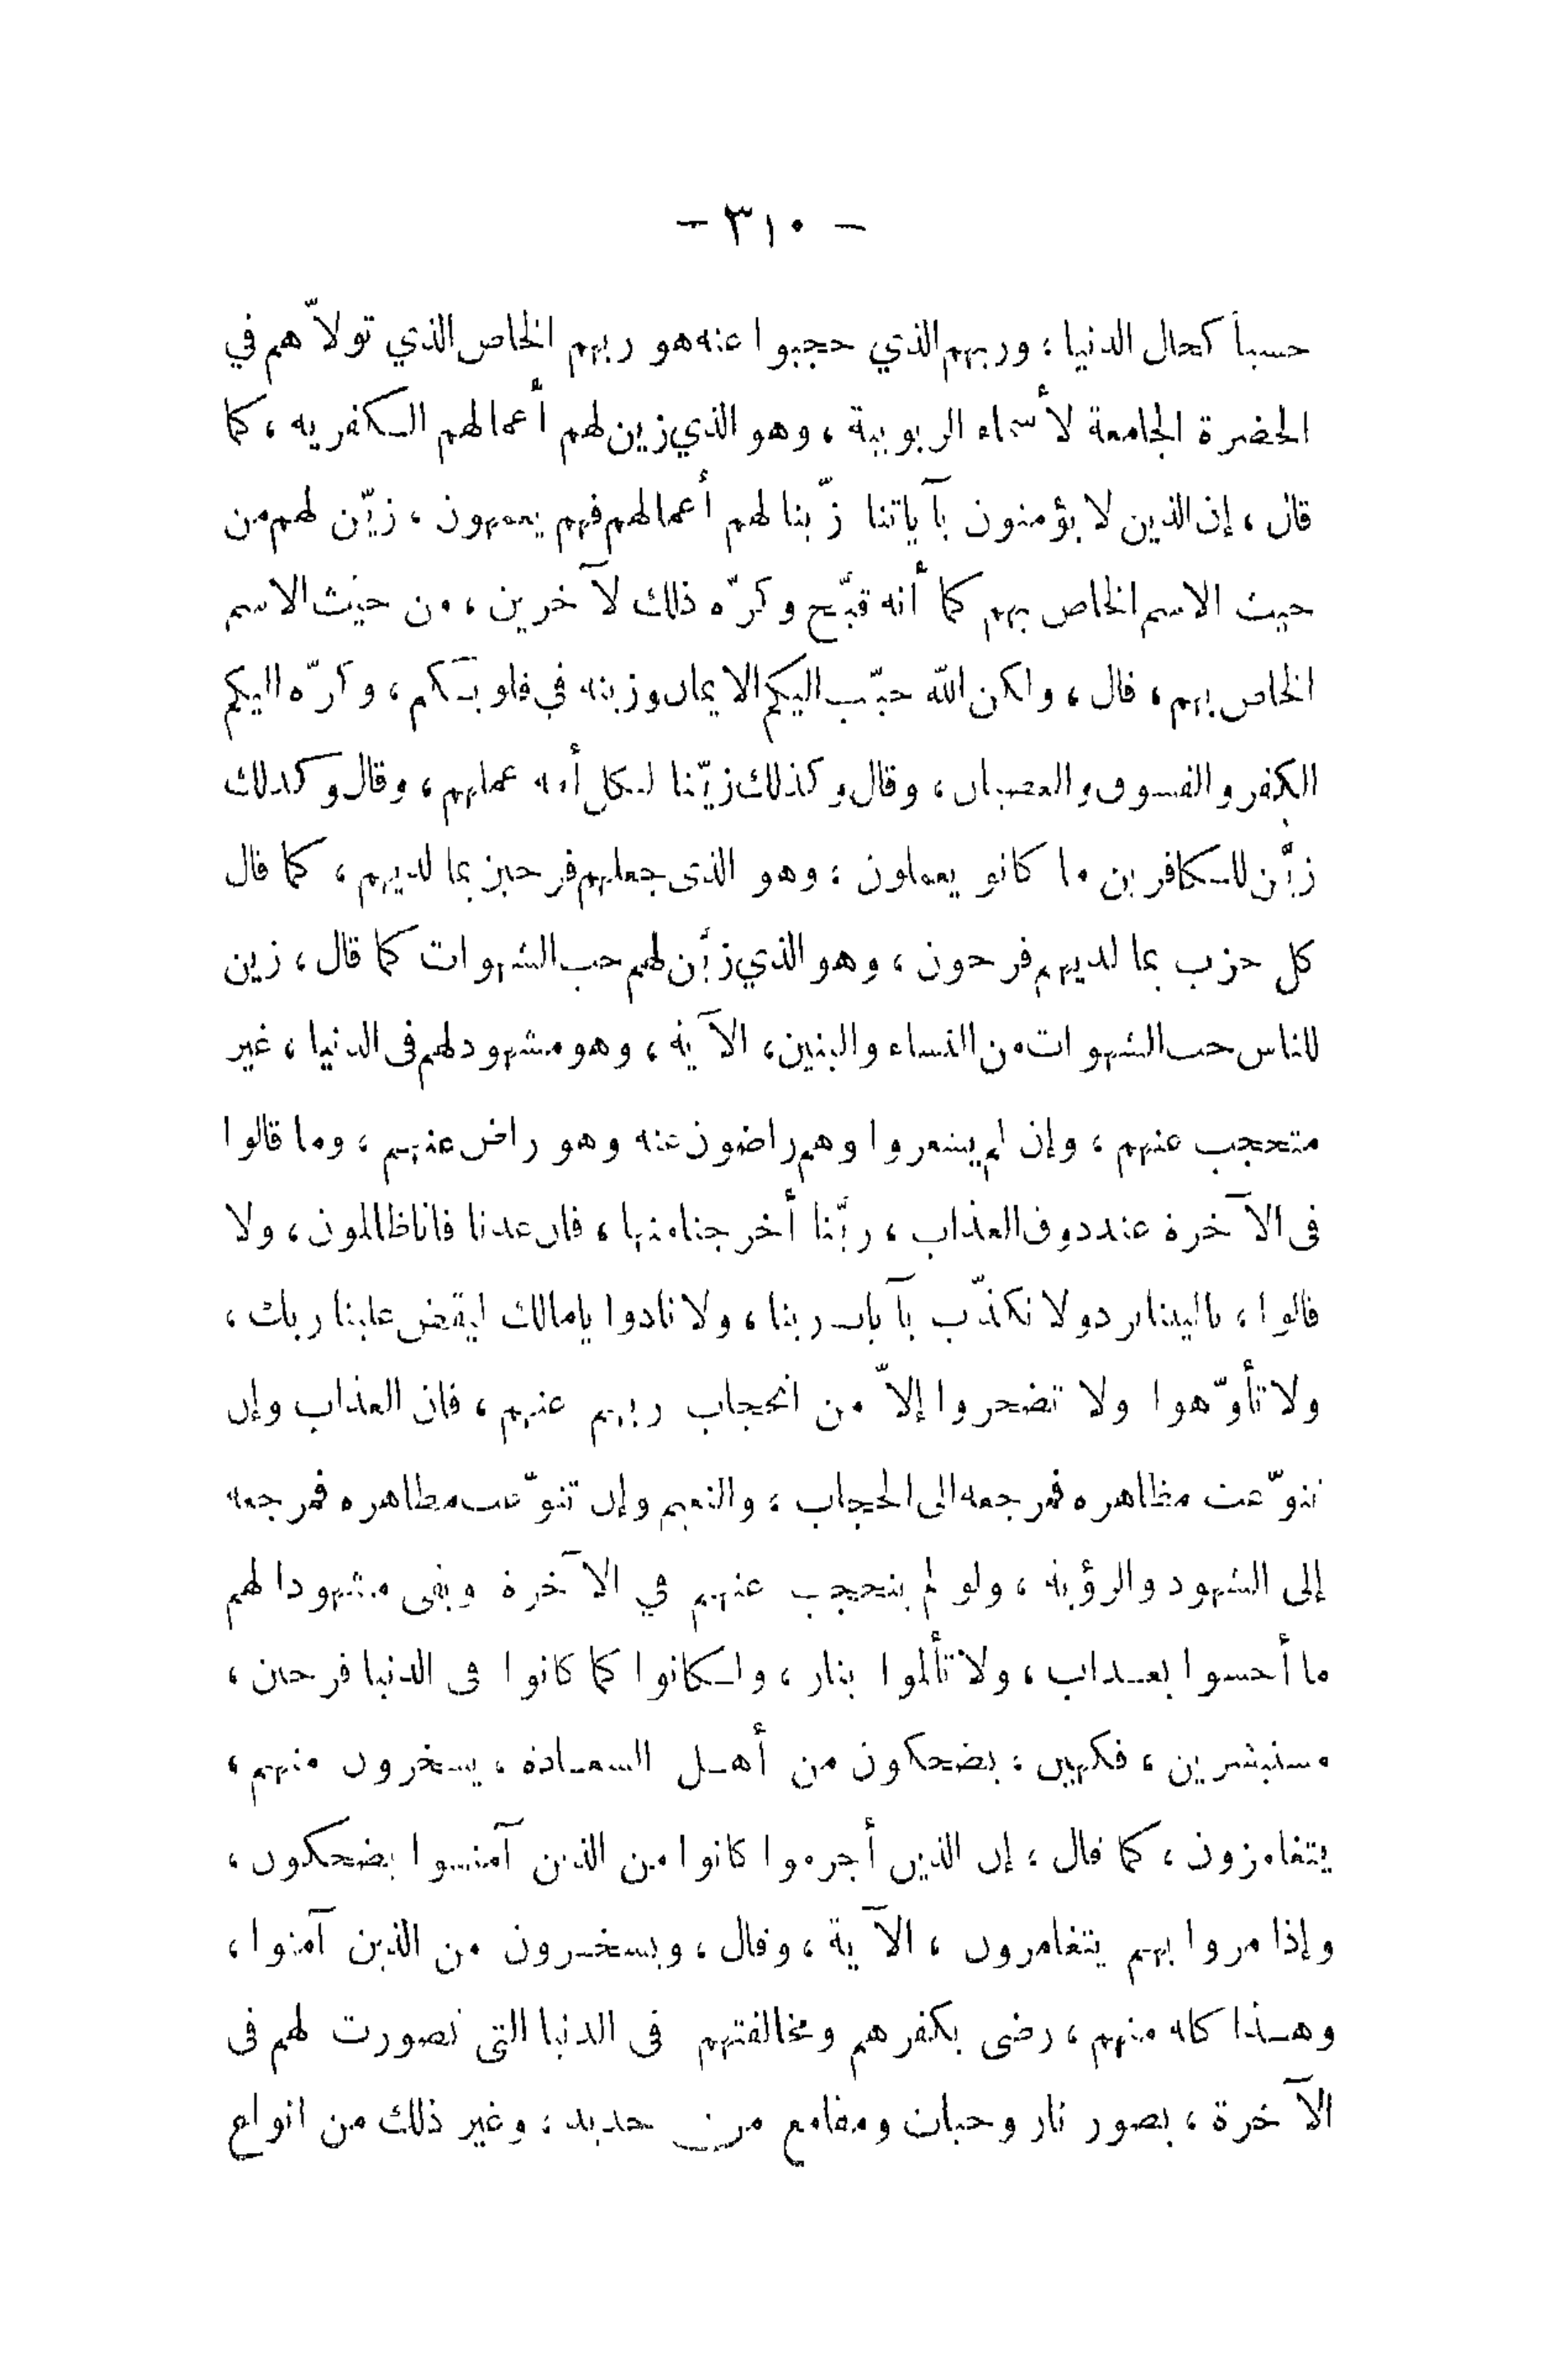 - ٣١٠ -
حسباً كحال الدنيا، وربهم الذي حجبوا عنه هو ربهم الخاص الذي تولاّهم في
الحضرة الجامعة لأسماء الربوبية، وهو الذي زين لهم أعمالهم الكفريه، كما
قال، إن الذين لا يؤمنون بآياتنا زيّنا لهم أعمالهم فهم يعمهون، زيّن لهم من
حيث الاسم الخاص بهم كما أنه قبّح وكرّه ذلك لآخرين، من حيث الاسم
الخاص بهم، قال، ولكن الله حبّب اليكم الايمان وزينه في قلوبكم، وكرّه اليكم
الكفر والفسوق والعصيان، وقال وكذلك زيّنا لكل أمه عملهم، وقال وكذلك
زيّن للكافرين ما كانو يعملون؛ وهو الذى جعلهم فرحين بما لديهم، كما قال
كل حزب بما لديهم فرحون، وهو الذي زيّن لهم حب الشهوات كما قال، زين
للناس حب الشهوات من النساء والبنين، الآية، وهو مشهود لهم فى الدنيا، غير
متحجب عنهم، وإن لم يشعروا وهم راضون عنه وهو راض عنهم، وما قالوا
فى الآخرة عند ذوق العذاب، ربّنا أخرجنا منها، فان عدنا فانا ظالمون، ولا
قالوا، ياليتنا نرد ولا نكذّب بآيات ربنا، ولا نادوا يامالك ليقض علينا ربك،
ولا تأوّهوا ولا تضجروا إلاّ من انحجاب ربهم عنهم، فان العذاب وإن
تنوّعت مظاهره فمرجعه الى الحجاب، والنعيم وإن تنوّعت مظاهره فمرجعه
إلى الشهود والرؤية، ولو لم ينحجب عنهم في الآخرة وبقى مشهودا لهم
ما أحسوا بعذاب، ولا تألموا بنار، ولكانوا كما كانوا فى الدنيا فرحين،
مستبشرين، فكهين، يضحكون من أهل السعادة، يسخرون منهم،
يتغامزون، كما قال، إن الذين أجرموا كانوا من الذين آمنوا يضحكون،
وإذا مروا بهم يتغامزون، الآية، وقال، ويسخرون من الذين آمنوا،
وهذا كله منهم، رضى بكفرهم ومخالفتهم فى الدنيا التى تصورت لهم فى
الآخرة، بصور نار وحيات ومقامع من حديد، وغير ذلك من انواع